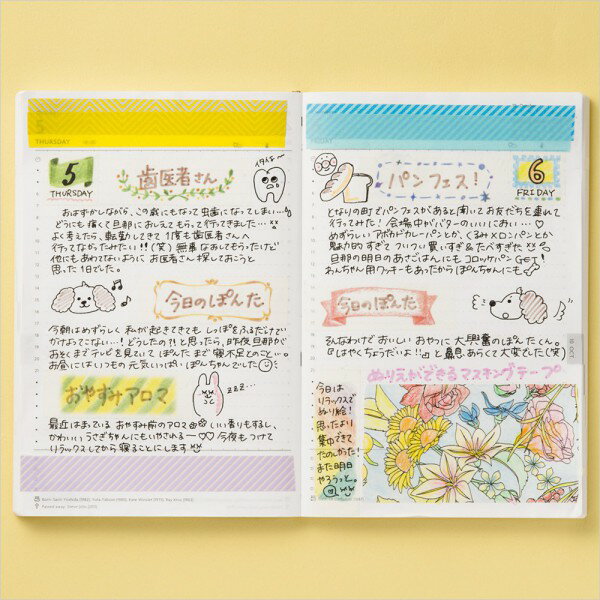 THURSDAY
5
THURSDAY
歯医者さん
イタイよ〜
おはずかしながら、この歳にもなって虫歯になってしまい…
どうにも痛くて旦那におしえてもらって行ってきました…
よく考えたら、転勤してきて1度も歯医者さんへ
行ってなかったみたい!!(笑)
他にもあわてないように お医者さん探しておこうと
思った1日でした。
今日のぽんた
今朝はめずらしく 私が起きてきても しっぽをふるだけで
かけよってこない…! どうしたの!?と思ったら、昨夜旦那が
おそくまでテレビを見ていて ぽんたまで寝不足とのこと…。
お昼にはいつもの元気いっぱいぽんちゃんでした
おやすみアロマ
zzz...
最近はまっている おやすみ前のアロマ いい香りもするし、
かわいいうさぎちゃんにもいやされる〜♡♡ 今夜もつけて
リラックスしてから寝ることにします
パンフェス!
6
FRIDAY
となりの町でパンフェスがあると聞いてお友だちを連れて
行ってみた! 会場中がバターのいいにおい…♡
めずらしいアボカドカレーパンとか、くるみメロンパンとか
魅力的すぎて ついつい買いすぎ&たべすぎた
旦那の明日のあさごはんにも コロッケパン GET!
わんちゃん用クッキーもあったから ぽんちゃんにも
今日のぽんた
そんなわけで おいしいおやつに 大興奮のぽんたくん。
『はやくちょうだいよ!!』と鼻息あらくて大変でした(笑)
ぬりえができるマスキングテープ
今日は
リラックスで
ぬり絵!
思ったより
集中できて
たのしかった!
また明日
やろうっと。
10 OCT